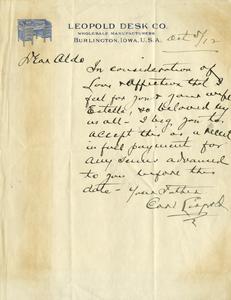 LEOPOLD DESK CO.
WHOLESALE MANUFACTURERS
BURLINGTON, IOWA, U.S.A.
Oct /12
Dear Aldo
In consideration of
Love & Affection that I
feel for you & your wife
Estella, so beloved by
us all - I beg you to
accept this as a receipt
in full payment for
any sums advanced
to you before this
date - Your Father
Carl Leopold